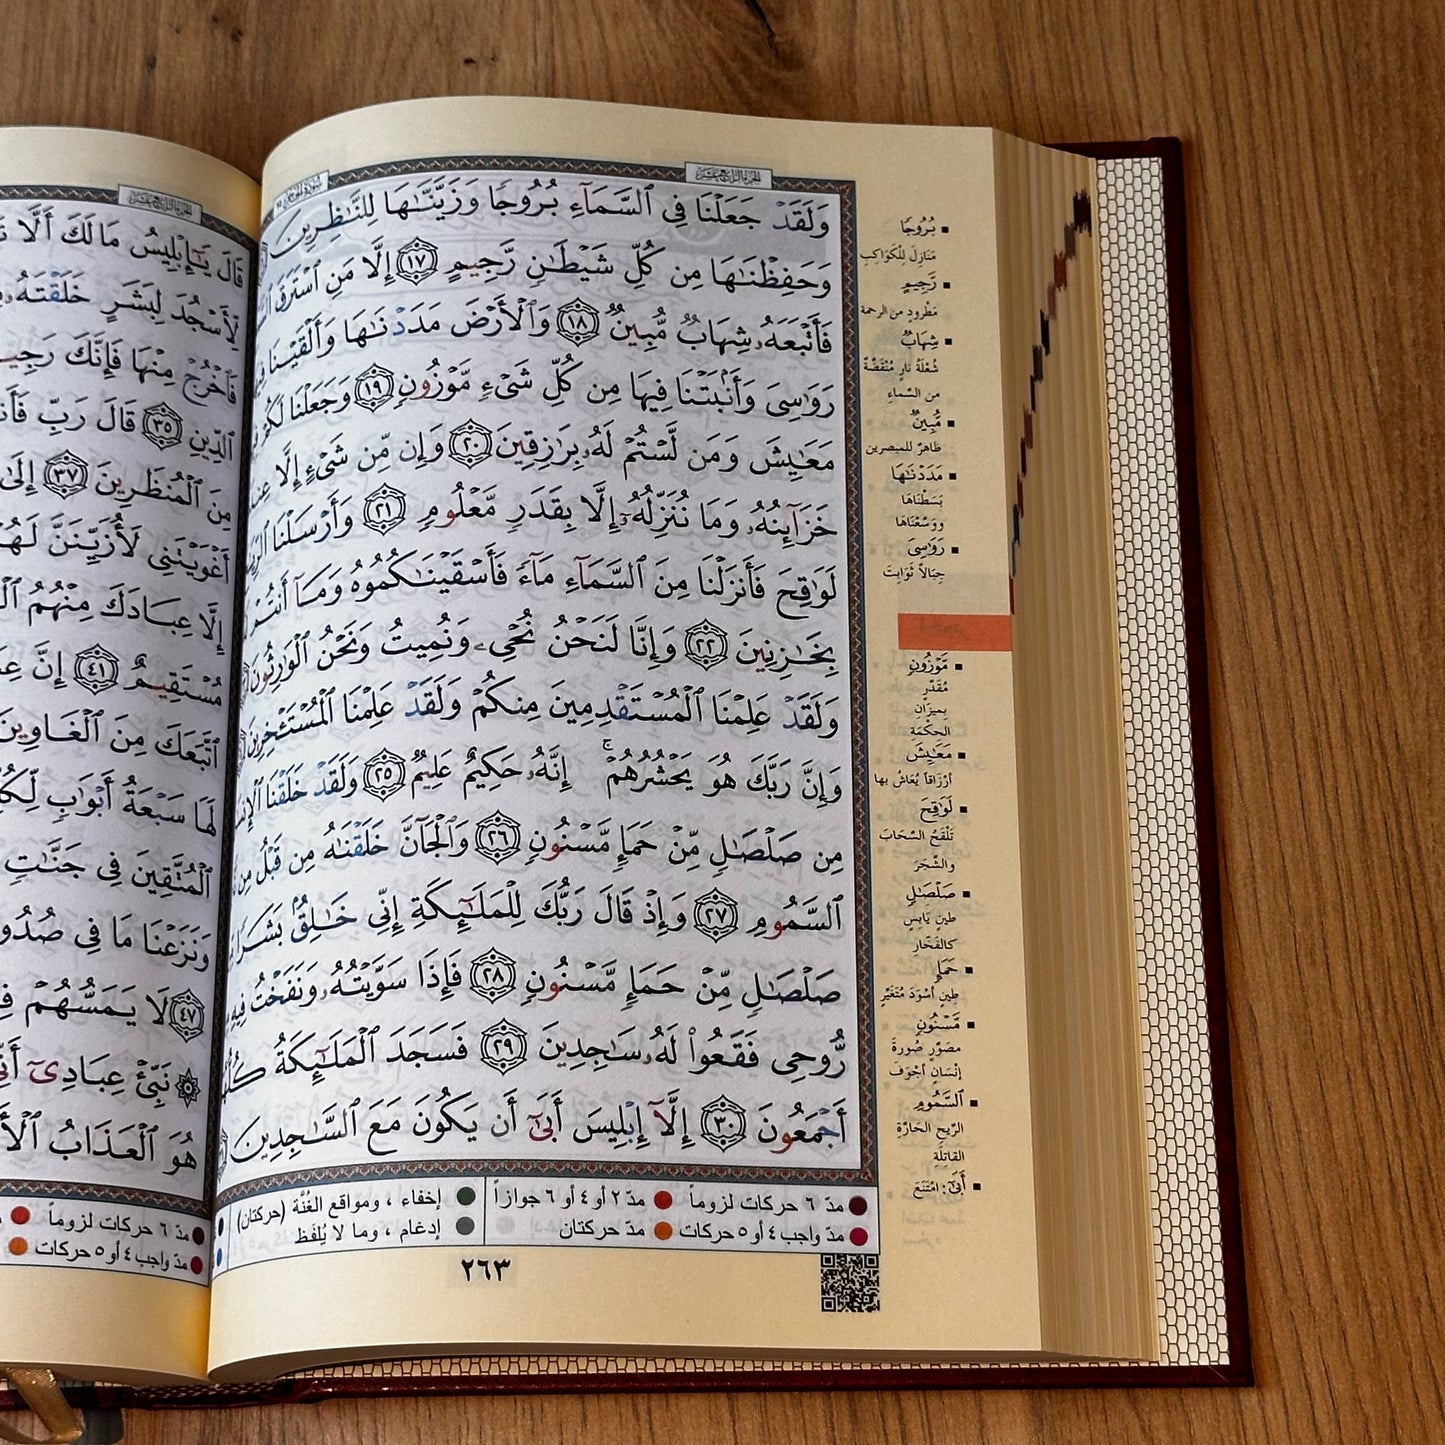 الجزء الرابع عشر
وَلَقَدْ جَعَلْنَا فِي ٱلسَّمَآءِ بُرُوجًا وَزَيَّنَّـٰهَا لِلنَّـٰظِرِينَ
وَحَفِظْنَـٰهَا مِن كُلِّ شَيْطَـٰنٍ رَّجِيمٍ ١٧ إِلَّا مَنِ ٱسْتَرَقَ
فَأَتْبَعَهُۥ شِهَابٌ مُّبِينٌ ١٨ وَٱلْأَرْضَ مَدَدْنَـٰهَا وَأَلْقَيْنَا
رَوَٰسِيَ وَأَنۢبَتْنَا فِيهَا مِن كُلِّ شَىْءٍ مَّوْزُونٍ ١٩ وَجَعَلْنَا لَكُمْ
مَعَـٰيِشَ وَمَن لَّسْتُمْ لَهُۥ بِرَٰزِقِينَ ٢٠ وَإِن مِّن شَىْءٍ إِلَّا
خَزَآئِنُهُۥ وَمَا نُنَزِّلُهُۥٓ إِلَّا بِقَدَرٍ مَّعْلُومٍ ٢١ وَأَرْسَلْنَا
لَوَٰقِحَ فَأَنزَلْنَا مِنَ ٱلسَّمَآءِ مَآءً فَأَسْقَيْنَـٰكُمُوهُ وَمَآ أَنتُمْ
بِخَـٰزِنِينَ ٢٢ وَإِنَّا لَنَحْنُ نُحْىِۦ وَنُمِيتُ وَنَحْنُ ٱلْوَٰرِثُونَ
وَلَقَدْ عَلِمْنَا ٱلْمُسْتَقْدِمِينَ مِنكُمْ وَلَقَدْ عَلِمْنَا ٱلْمُسْتَـْٔخِرِينَ
وَإِنَّ رَبَّكَ هُوَ يَحْشُرُهُمْ ۚ إِنَّهُۥ حَكِيمٌ عَلِيمٌ ٢٥ وَلَقَدْ خَلَقْنَا
مِن صَلْصَـٰلٍ مِّنْ حَمَإٍ مَّسْنُونٍ ٢٦ وَٱلْجَآنَّ خَلَقْنَـٰهُ مِن قَبْلُ مِن
ٱلسَّمُومِ ٢٧ وَإِذْ قَالَ رَبُّكَ لِلْمَلَـٰٓئِكَةِ إِنِّى خَـٰلِقٌۢ بَشَرًا
صَلْصَـٰلٍ مِّنْ حَمَإٍ مَّسْنُونٍ ٢٨ فَإِذَا سَوَّيْتُهُۥ وَنَفَخْتُ فِيهِ
رُّوحِى فَقَعُوا۟ لَهُۥ سَـٰجِدِينَ ٢٩ فَسَجَدَ ٱلْمَلَـٰٓئِكَةُ
أَجْمَعُونَ ٣٠ إِلَّآ إِبْلِيسَ أَبَىٰٓ أَن يَكُونَ مَعَ ٱلسَّـٰجِدِينَ
بُرُوجًا
مَنَازِلَ لِلْكَوَاكِبِ
رَّجِيمٍ
مَطْرودٍ من الرحمة
شِهَابٌ
شُعْلَةُ نَارٍ مُنْقَضَّةٌ
من السَّماءِ
مُّبِينٌ
ظاهرٌ للمبصرين
مَدَدْنَـٰهَا
بَسَطْنَاهَا
وَوَسَّعْنَاهَا
رَوَٰسِيَ
جِبَالاً ثَوَابِتَ
مَّوْزُونٍ
مُقَدَّرٍ
بِمِيزَانِ
الحِكْمَةِ
مَعَـٰيِشَ
أرْزَاقاً يُعَاشُ بها
لَوَٰقِحَ
تُلَقِّحُ السَّحَابَ
والشَّجَرَ
صَلْصَـٰلٍ
طينٍ يَابِسٍ
كالفَخَّارِ
حَمَإٍ
طينٍ أسْوَدَ مُتَغَيِّرٍ
مَّسْنُونٍ
مصَوَّرٍ صُورةَ
إنْسَانٍ أجْوَفَ
ٱلسَّمُومِ
الرِّيحِ الحَارَّةِ
القاتِلَةِ
أَبَىٰٓ : امْتَنَعَ
مدّ ٦ حركات لزوماً مدّ ٢ أو ٤ أو ٦ جوازاً إخفاء ، ومواقع الغُنَّة (حركتان)
مدّ واجب ٤ أو ٥ حركات مدّ حركتان إدغام ، وما لا يُلفَظ
٢٦٣
الجزء الرابع عشر
قَالَ يَـٰٓإِبْلِيسُ مَا لَكَ أَلَّا
لِّأَسْجُدَ لِبَشَرٍ خَلَقْتَهُۥ
فَٱخْرُجْ مِنْهَا فَإِنَّكَ رَجِيمٌ
ٱلدِّينِ ٣٥ قَالَ رَبِّ
مِنَ ٱلْمُنظَرِينَ ٣٧ إِلَىٰ
أَغْوَيْتَنِى لَأُزَيِّنَنَّ لَهُمْ
إِلَّا عِبَادَكَ مِنْهُمُ
مُسْتَقِيمٌ ٤١ إِنَّ
ٱتَّبَعَكَ مِنَ ٱلْغَاوِينَ
لَهَا سَبْعَةُ أَبْوَٰبٍ
ٱلْمُتَّقِينَ فِى جَنَّـٰتٍ
وَنَزَعْنَا مَا فِى
٤٧ لَا يَمَسُّهُمْ
۞ نَبِّئْ عِبَادِىٓ
هُوَ ٱلْعَذَابُ
مدّ ٦ حركات لزوماً
مدّ واجب ٤ أو ٥ حركات